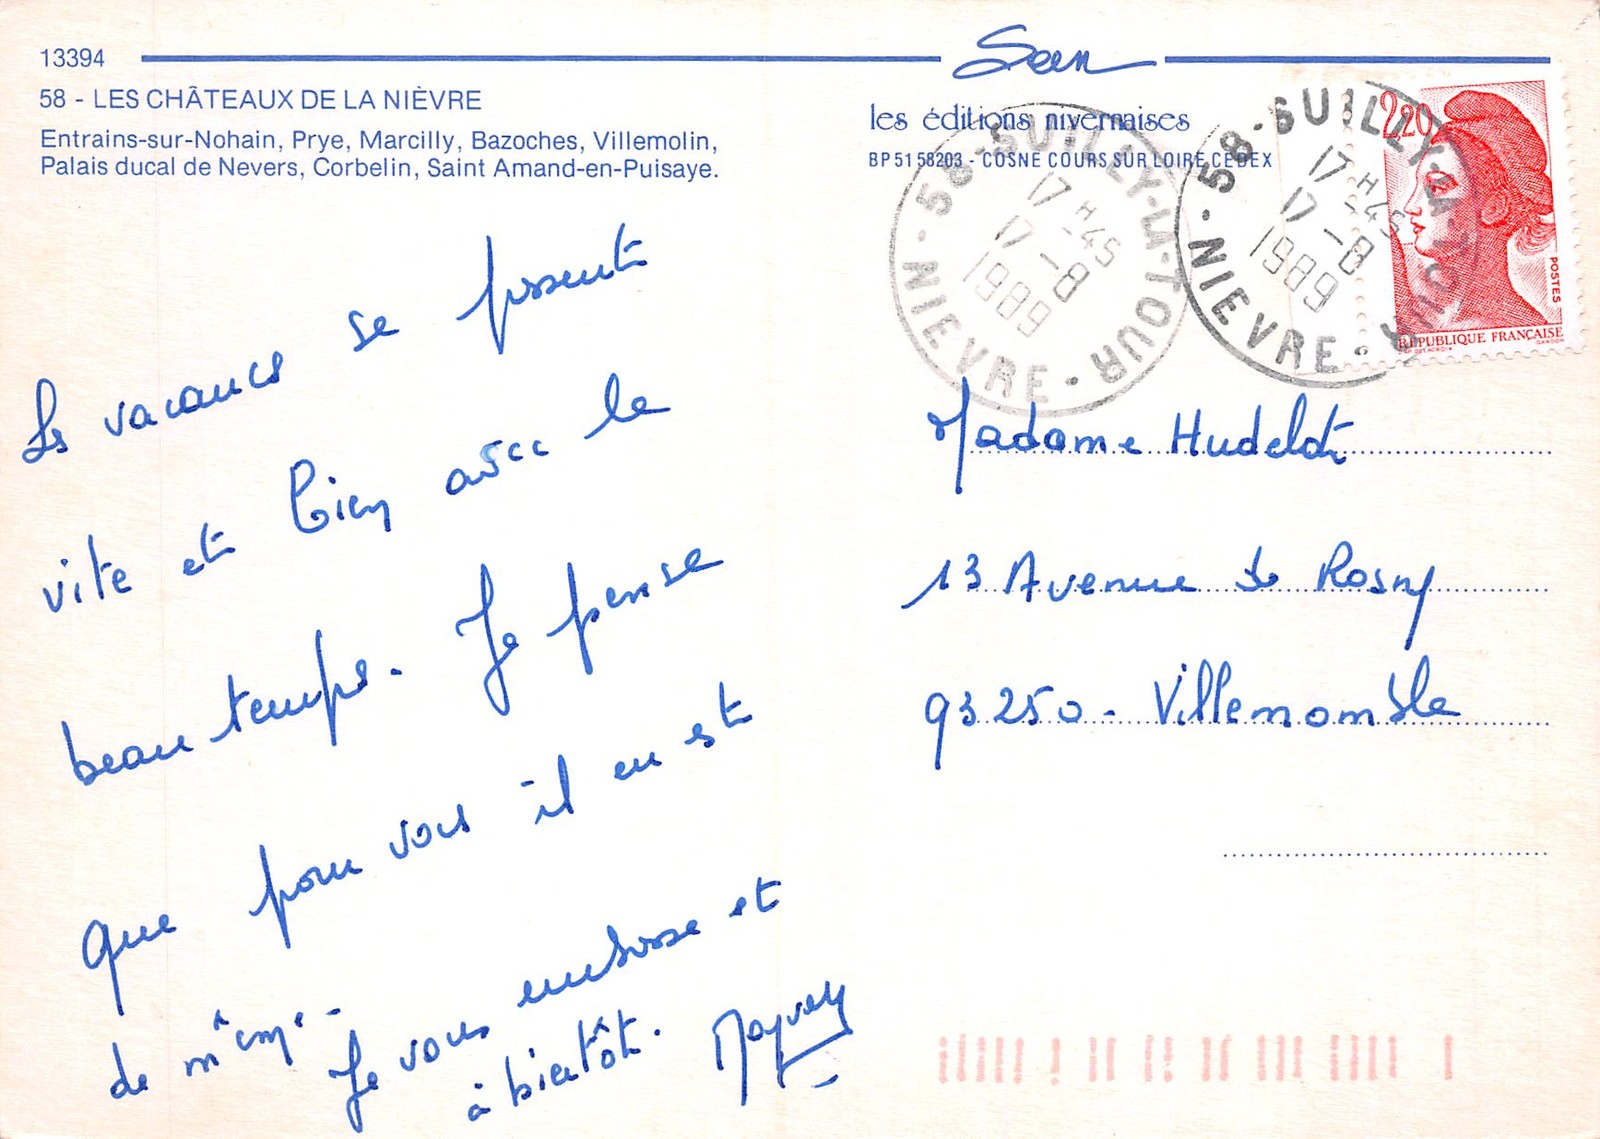 13394
58 - LES CHÂTEAUX DE LA NIÈVRE
Entrains-sur-Nohain, Prye, Marcilly, Bazoches, Villemolin,
Palais ducal de Nevers, Corbelin, Saint Amand-en-Puisaye.
Les vacances se passent
vite et bien avec le
beau temps. Je pense
que pour vous il en est
de même.
Je vous embrasse et
à bientôt.
les éditions nivernaises
BP 51 58203 - COSNE COURS SUR LOIRE CEDEX
58 - SUILLY-LA-TOUR
17 H 45
17 - 8
1989
NIEVRE
58 - SUILLY-LA-TOUR
17 H 45
17 - 8
1989
NIEVRE
2,20
POSTES
REPUBLIQUE FRANÇAISE
Madame Hudelot
13 Avenue de Rosny
93250 - Villemomble